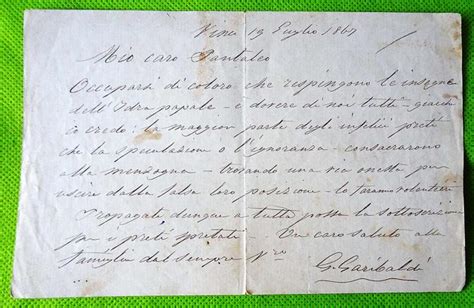 Vinci 19 Luglio 1867
Mio caro Pantaleo
Occuparsi di coloro che respingono le insegne
dell'Idra papale - è dovere di noi tutti - giacchè
io credo: la maggior parte degli infelici preti
che la speculazione o l'ignoranza - consacrarono
alla menzogna - trovando una via onesta per
uscire dalla falsa loro posizione - lo faranno volentieri
Propagate dunque a tutta possa la sottoscrizione
per i preti spretati - Un caro saluto alla
famiglia dal sempre Vro
G. Garibaldi